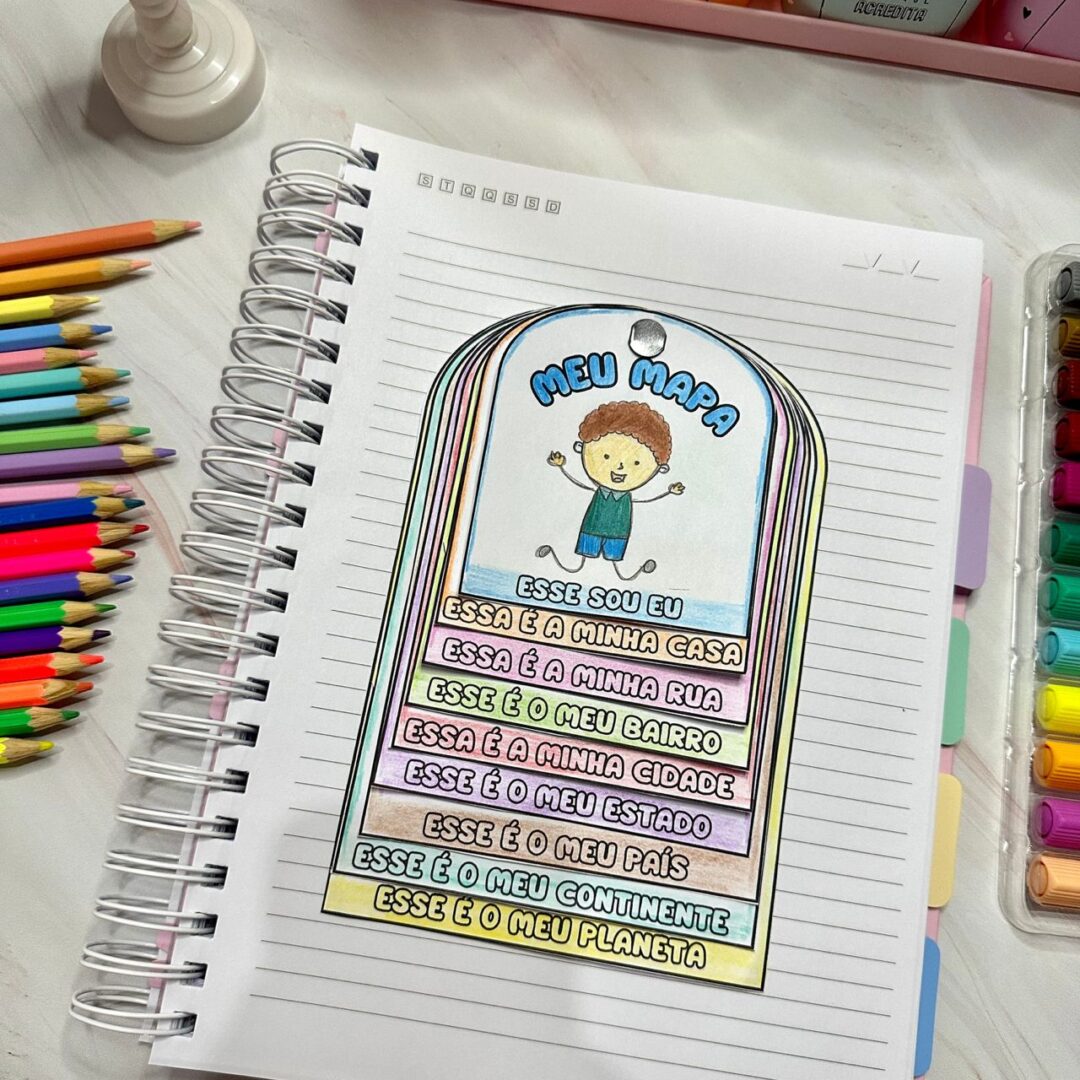 ACREDITA
S T Q Q S S D
MEU MAPA
ESSE SOU EU
ESSA É A MINHA CASA
ESSA É A MINHA RUA
ESSE É O MEU BAIRRO
ESSA É A MINHA CIDADE
ESSE É O MEU ESTADO
ESSE É O MEU PAÍS
ESSE É O MEU CONTINENTE
ESSE É O MEU PLANETA